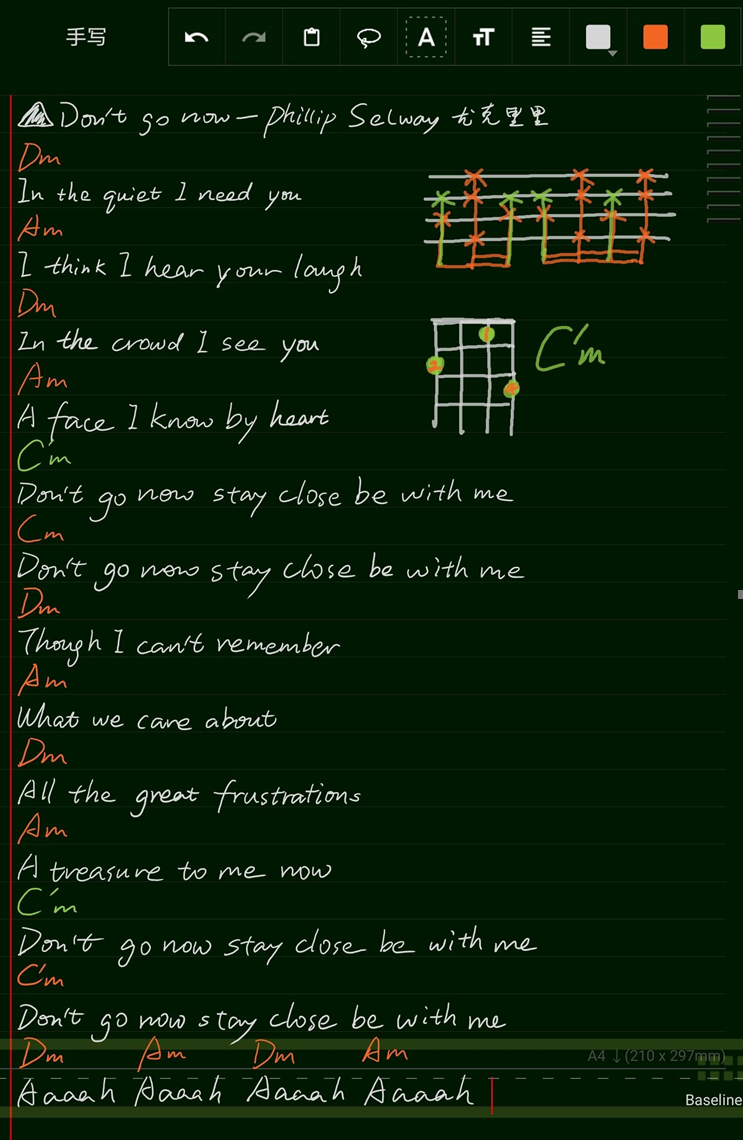 手写
A
TT
Don't go now — Phillip Selway 尤克里里
Dm
In the quiet I need you
Am
I think I hear your laugh
Dm
In the crowd I see you
Am
A face I know by heart
C'm
C'm
Don't go now stay close be with me
Cm
Don't go now stay close be with me
Dm
Though I can't remember
Am
What we care about
Dm
All the great frustrations
Am
A treasure to me now
C'm
Don't go now stay close be with me
C'm
Don't go now stay close be with me
Dm Am Dm Am
A4 ↓ (210 x 297mm)
Aaaah Aaaah Aaaah Aaaah
Baseline